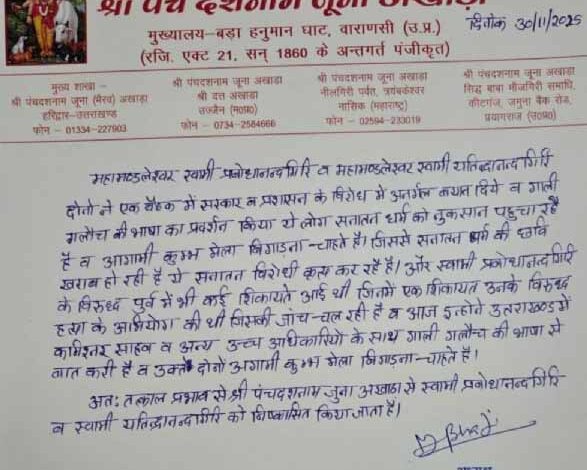 श्री पंच दशनाम जूना अखाड़ा
मुख्यालय–बड़ा हनुमान घाट, वाराणसी (उ.प्र.)
दिनांक 30/11/2025
(रजि. एक्ट 21, सन् 1860 के अन्तर्गत पंजीकृत)
मुख्य शाखा –
श्री पंचदशनाम जूना (भैरव) अखाड़ा
हरिद्वार–उत्तराखण्ड
फोन – 01334-227903
श्री पंचदशनाम जूना अखाड़ा
श्री दत्त अखाड़ा
उज्जैन (म०प्र०)
फोन – 0734-2584666
श्री पंचदशनाम जूना अखाड़ा
नीलगिरी पर्वत, त्र्यंबकेश्वर
नासिक (महाराष्ट्र)
फोन – 02594-233019
श्री पंचदशनाम जूना अखाड़ा
सिद्ध बाबा मौजगिरी समाधि,
कीटगंज, जमुना बैंक रोड,
प्रयागराज (उ०प्र०)
महामण्डलेश्वर स्वामी प्रबोधानन्दगिरि व महामण्डलेश्वर स्वामी यतिन्द्रानन्दगिरि
दोनो ने एक बैठक में सरकार व प्रशासन के विरोध में अनर्गल बयान दिये व गाली
गलौच की भाषा का प्रदर्शन किया ये लोग सनातन धर्म को नुकसान पहुचा रहे
है व आगामी कुम्भ मेला बिगाड़ना चाहते है। जिससे सनातन धर्म की छवि
खराब हो रही है ये सनातन विरोधी कृत्य कर रहे है। और स्वामी प्रबोधानन्दगिरि
के विरुद्ध पूर्व में भी कई शिकायते आई थी जिनमे एक शिकायत उनके विरुद्ध
हत्या के अभियोग की थी जिसकी जांच चल रही है व आज इन्होने उत्तराखण्ड में
कमिश्नर साहब व अन्य उच्च अधिकारियो के साथ गाली गलौच की भाषा से
बात करी है व उक्त दोनों आगामी कुम्भ मेला बिगाड़ना चाहते है।
अतः तत्काल प्रभाव से श्री पंचदशनाम जूना अखाडा से स्वामी प्रबोधानन्दगिरि
व स्वामी यतिन्द्रानन्दगिरि को निष्कासित किया जाता है।